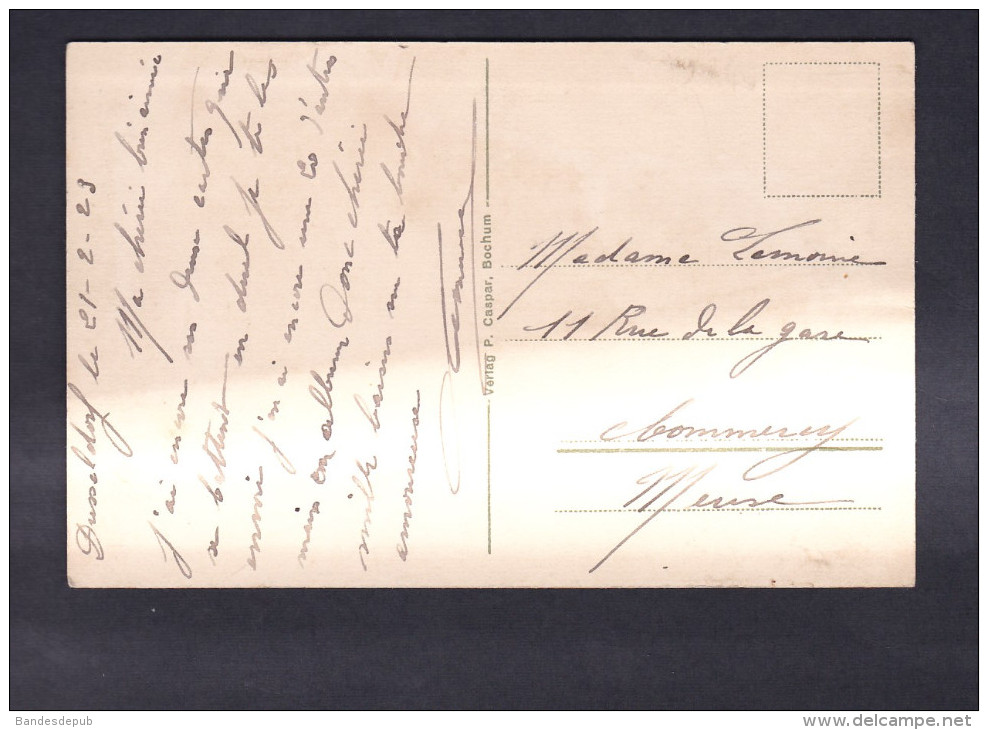 Dusseldorf le 21-2-23
Ma chérie bien aimée
J'ai encore deux cartes qui
se battent en duel je te les
envoie j'en ai encore une d'autres
mais en album Donc chérie
mille baisers sur ta bouche
amoureuse
Verlag P. Caspar, Bochum
Madame Lemoine
11 Rue de la gare
Commercy
Meuse
Bandesdepub
www.delcampe.net